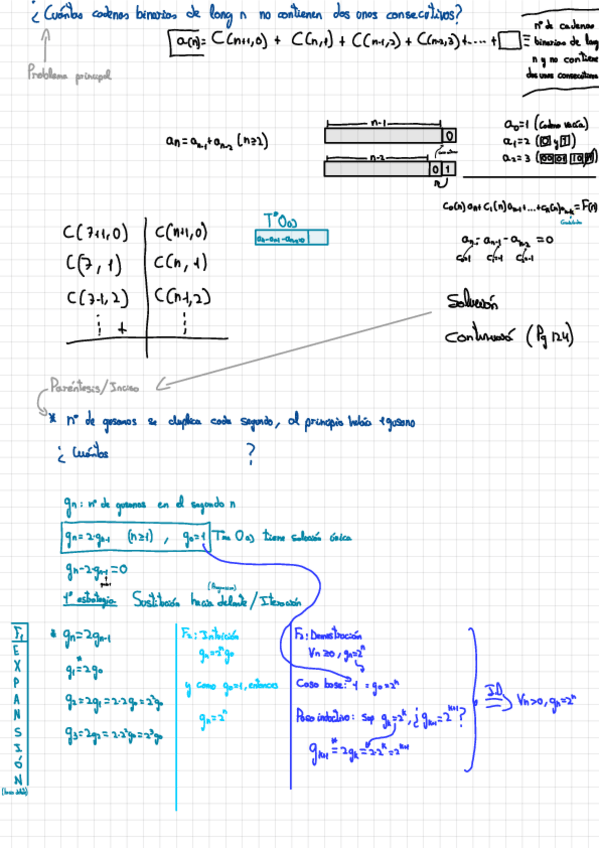 ¿Cuántas cadenas binarias de long n no contienen dos unos consecutivos?
a(n) = C(n+1,0) + C(n,1) + C(n-1,2) + C(n-2,3) + .... + □ ≡
nº de cadenas
binarias de long
n y no contiene
dos unos consecutivos
Problema principal
an = an-1 + an-2 (n≥2)
n-1
0
n-2
0 1
n
a0=1 (cadena vacía)
a1=2 (0 y 1)
a2=3 (00 01 10
C0(n) an + C1(n) an-1 + ... + Ck(n) an-k = F(n)
an - an-1 - an-2 = 0
C(7+1,0) C(n+1,0)
C(7,1) C(n,1)
C(7-1,2) C(n-1,2)
⋮ + ⋮
an-an-1-an-2=0
Solución
Continuará (Pg 124)
Paréntesis/Inciso
* nº de gusanos se duplica cada segundo, al principio había 1 gusano
¿Cuántos ?
gn: nº de gusanos en el segundo n
gn = 2·gn-1 (n≥1) , g0=1 tiene solución única
gn-2gn-1=0
1ª estrategia Sustitución hacia delante/Iteración
F1
EXPANSIÓN
* gn=2gn-1
g1=2g0
g2=2g1=2·2g0=2²g0
g3=2g2=2·2²g0=2³g0
F2: Intuición
gn=2ⁿg0
y como g0=1, entonces
gn=2ⁿ
F3: Demostración
∀n≥0, gn=2ⁿ
Caso base: 1=g0=2ⁿ
Paso inductivo: sup gk=2ᵏ, ¿gk+1=2ᵏ⁺¹?
gk+1=2gk=2·2ᵏ=2ᵏ⁺¹
∀n>0, gn=2ⁿ